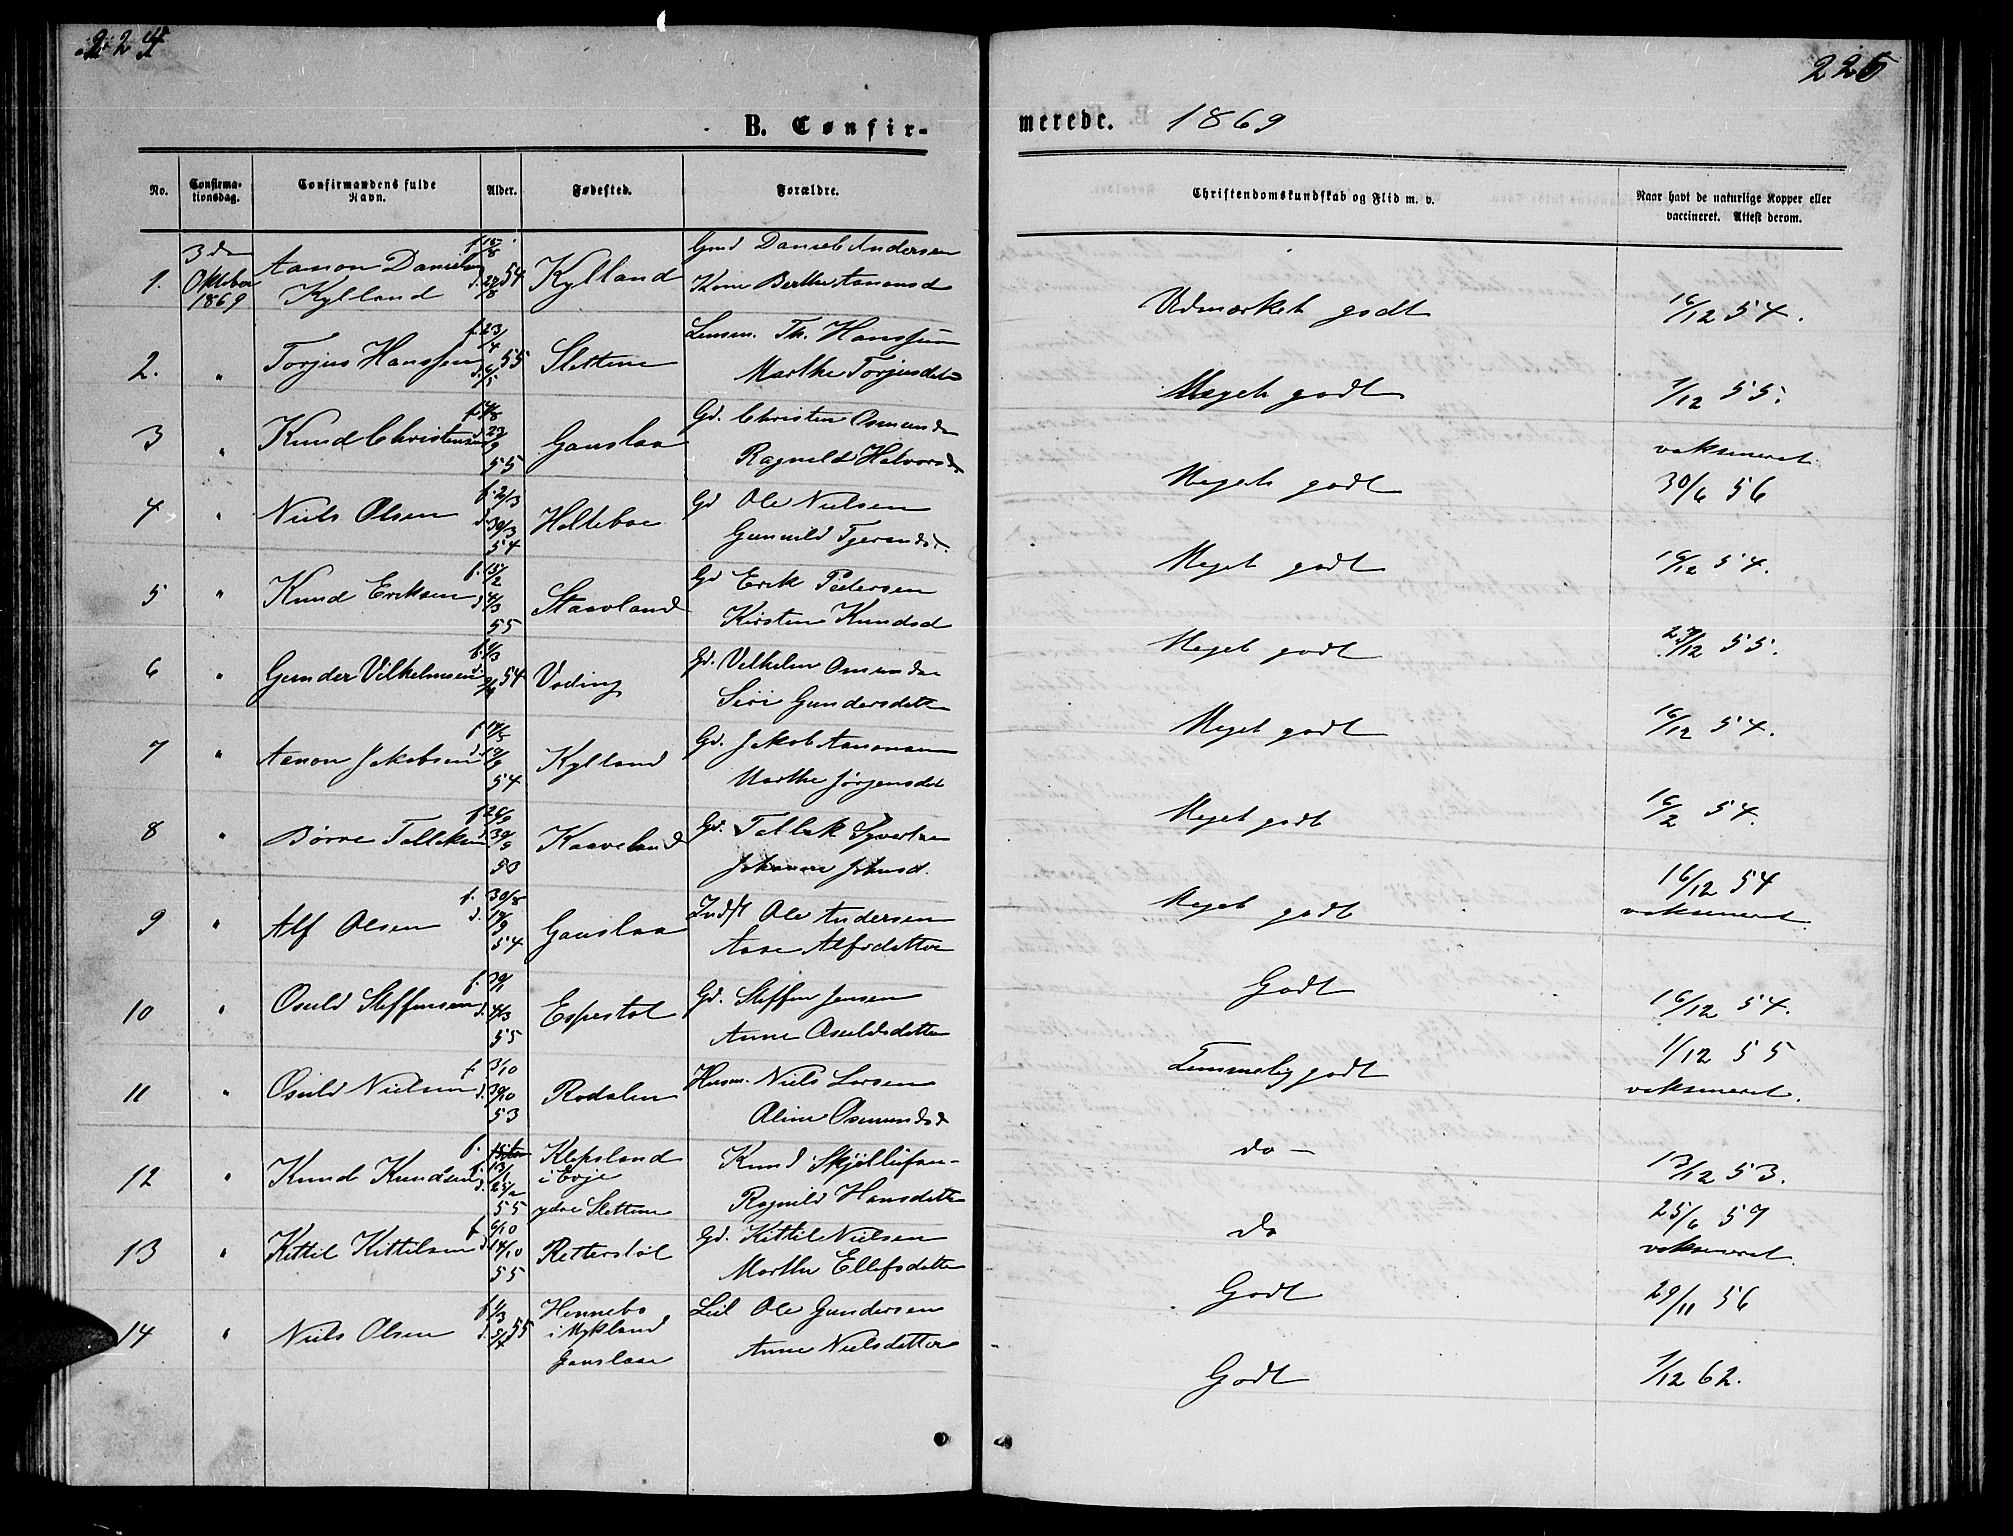 224
225
B. Confir-
merede. 1869
No.
Confirma-
tionsdag.
Confirmandens fulde
Navn.
Alder.
Fødested.
Forældre.
Christendomskundskab og Flid m. v.
Naar havt de naturlige Kopper eller
vaccineret. Attest derom.
1. 3
Oktober
1869
Aanon
Kylland
54
Kylland
Daniel Andersen
Kone Berthe
Udmærket godt
16/12 54.
2. "
Torjus Hanssen
f. 23/4 55
Slettene
Lensm. Th. Hanssen
Marthe
Meget godt
1/12 55.
3 "
Knud Christensen
55
Gauslaa
Gd. Christen
Ragnild
Meget godt
vaksineret
30/6 56
4 "
Niels Olsen
f. 21/3
d. 30/3
54
Holteboe
Gd Ole Nielsen
Gunnild
Meget godt
16/12 54.
5 "
Knud Eriksen
f. 15/2
d. 4/3
55
Staavland
Gd Erik Pedersen
Kirsten Knudsd
Meget godt
27/12 55.
6 "
Gunder Vilhelmsen
54
Voding
Gd. Vilhelm
Siri Gundersdatte
Meget godt
16/12 54.
7 "
Aanon Jakobsen
54
Kylland
Gd. Jakob Aanonsen
Marthe Jørgensdet
Meget godt
16/2 54.
8 "
Børre
53
Kaaveland
Gd.
Johanne Johnsd.
Meget godt
16/12 54
vaksineret.
9 "
Alf Olsen
f. 30/8
d. 10/9
54
Gauslaa
Indst Ole Andersen
Aase Alfsdatter
Godt
16/12 54.
10 "
Osuld Steffensen
f. 30/1
d. 4/3
55
Espestøl
Gd. Steffen Jensen
Anne Osuldsdatter
Temmelig godt
1/12 55
vaksineret.
11 "
Osuld Nielsen
f. 3/10
d. 30/10
53
Rodalen
Husm. Niels Larsen
Aline
do -
13/12 53.
12 "
Knud Knudsen
55
Klepsland
i Evje
Slettene
Knud
Ragnild Hansdatte
do
25/6 57
vaksineret
13 "
Kittil Kittilsen
f. 6/10
d. 14/10
55
Retterstøl
Gd. Kittil Nielsen
Marthe Ellefsdatte
Godt
29/11 56
14 "
Niels Olsen
55
Hennebo
i Mykland
Gauslaa
Leil Ole Gundersen
Anne Nielsdatter
Godt
1/12 62.